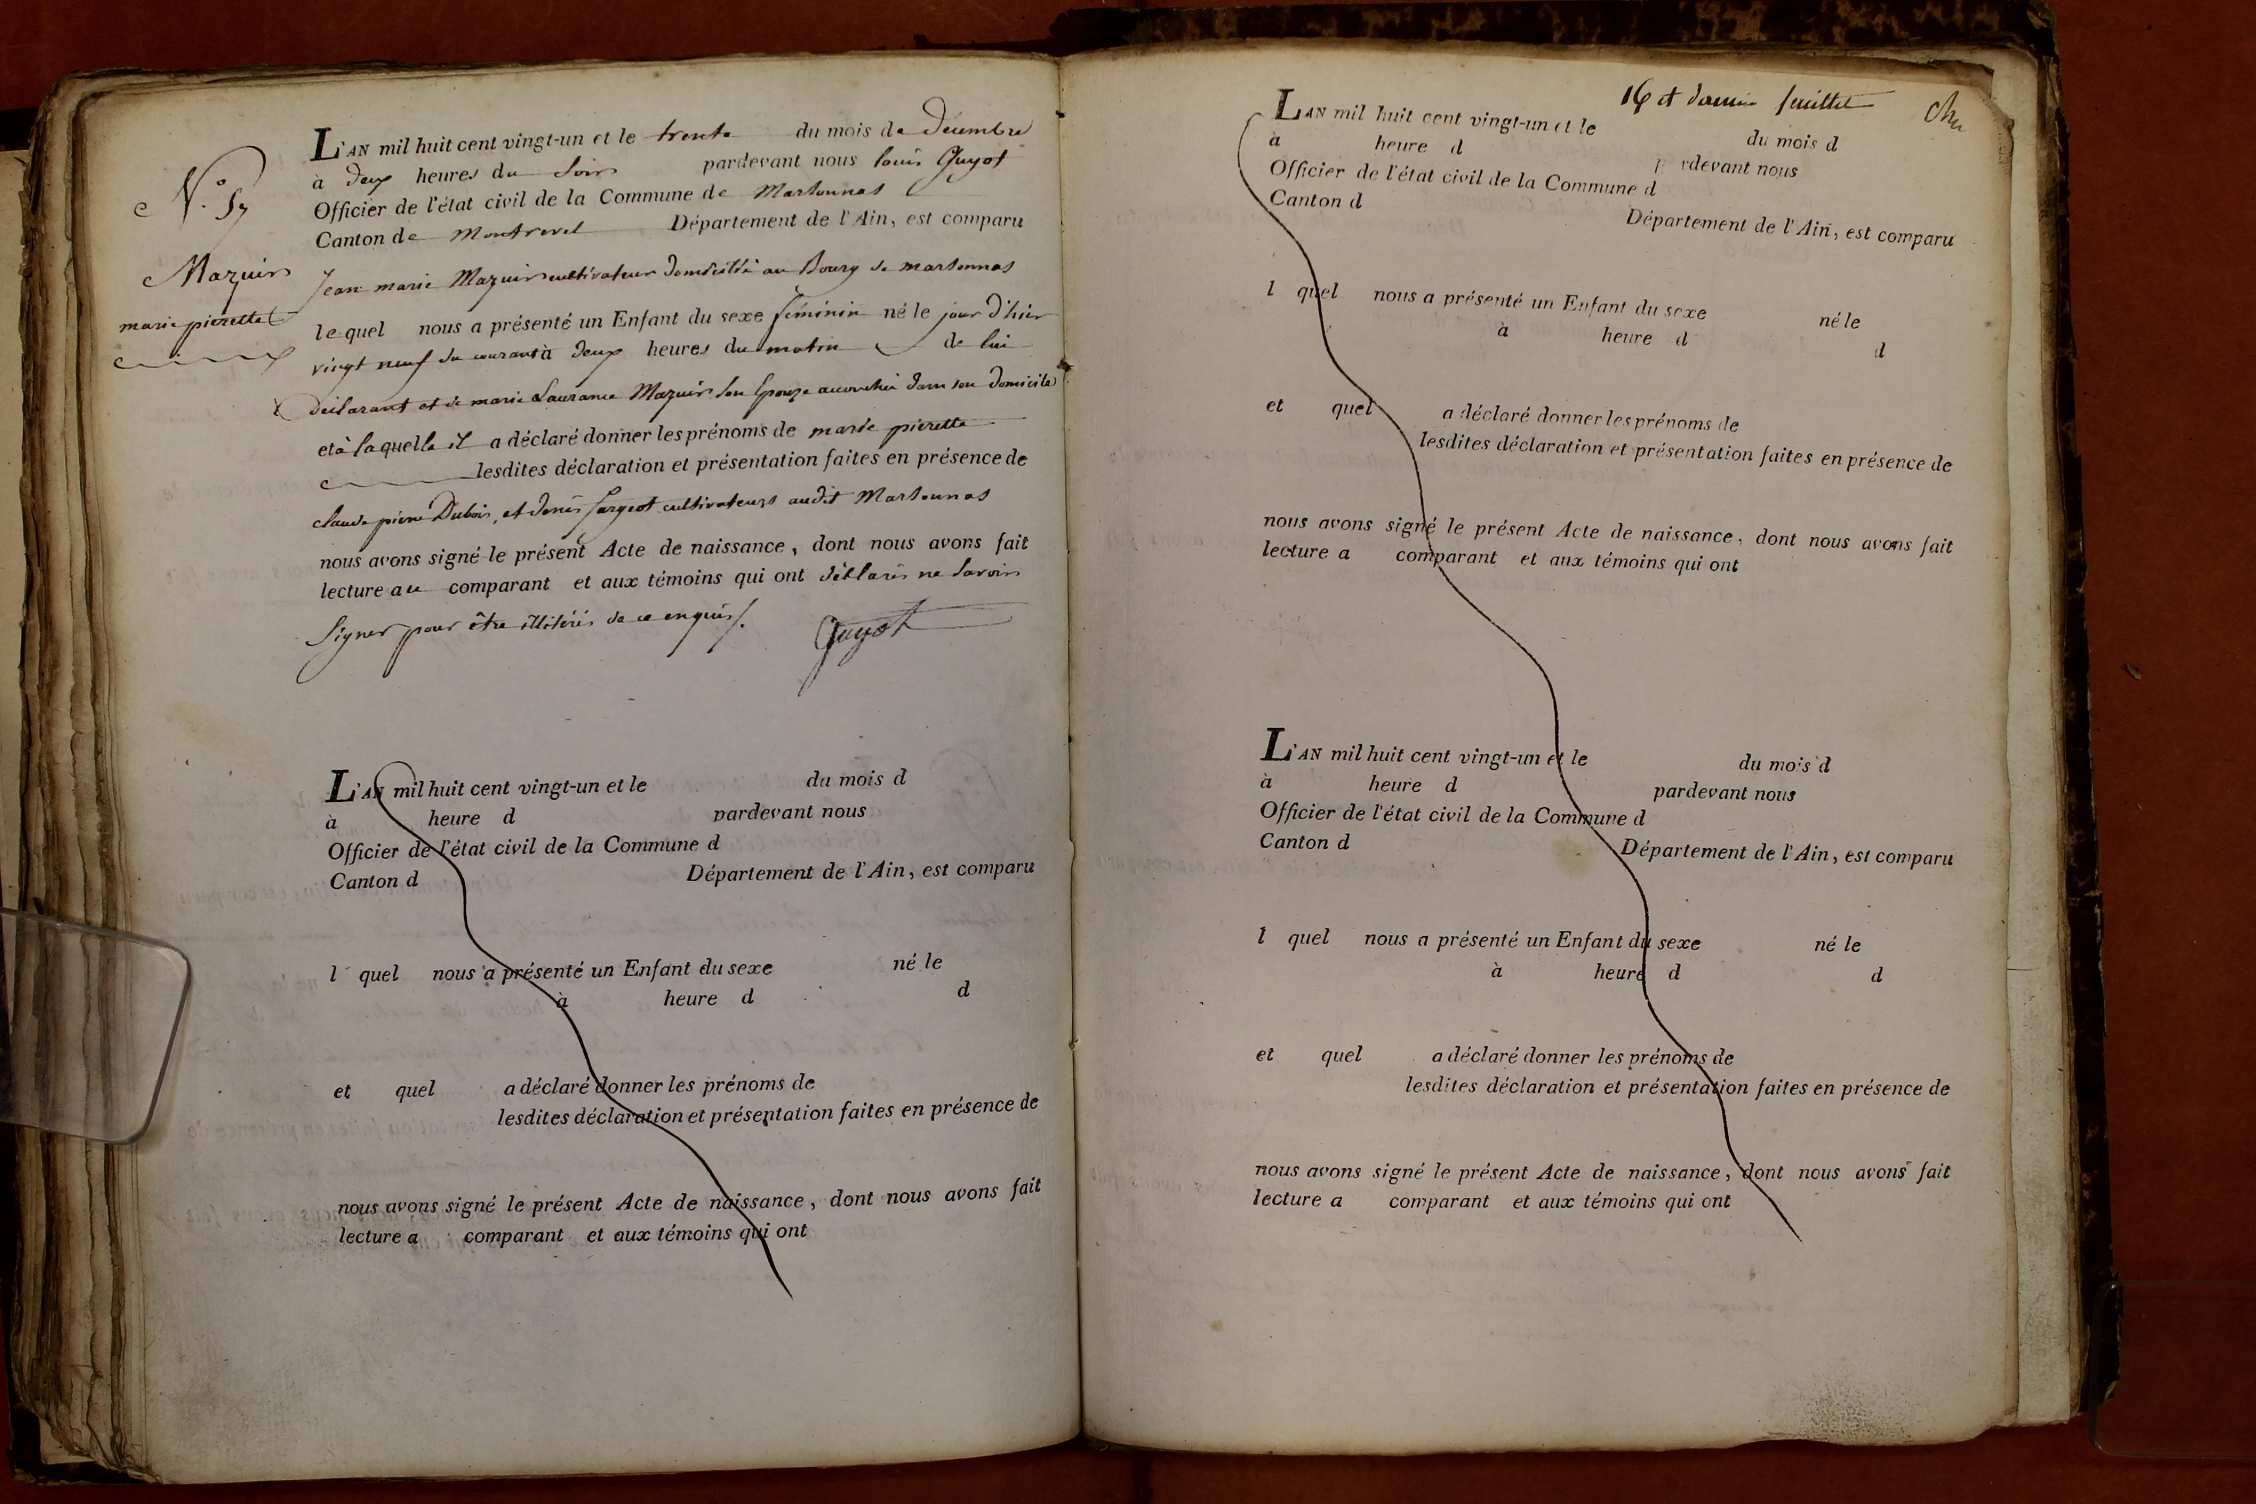 N.° 57
Mazuir
marie pierrette
L'AN mil huit cent vingt-un et le trente du mois de décembre
à deux heures du soir pardevant nous louis Guyot
Officier de l'état civil de la Commune de Marsonnas
Canton de Montrevel Département de l'Ain, est comparu
Jean marie Mazuir cultivateur domicilié au Bourg de marsonnas
lequel nous a présenté un Enfant du sexe féminin né le jour d'hier
vingt neuf du courant à deux heures du matin de lui
déclarant et de marie Laurance Mazuir son Epouze accouchée dans son domicile
et à laquelle il a déclaré donner les prénoms de marie pierette
lesdites déclaration et présentation faites en présence de
claude pierre Dubois, et denis cultivateurs audit Marsonnas
nous avons signé le présent Acte de naissance, dont nous avons fait
lecture au comparant et aux témoins qui ont déclarés ne savoir
Signer pour être illitérés de ce enquis.
Guyot
L'AN mil huit cent vingt-un et le du mois d
à heure d pardevant nous
Officier de l'état civil de la Commune d
Canton d Département de l'Ain, est comparu
l quel nous a présenté un Enfant du sexe né le
à heure d d
et quel a déclaré donner les prénoms de
lesdites déclaration et présentation faites en présence de
nous avons signé le présent Acte de naissance, dont nous avons fait
lecture a comparant et aux témoins qui ont
16 et dernier feuillet
L'AN mil huit cent vingt-un et le du mois d
à heure d pardevant nous
Officier de l'état civil de la Commune d
Canton d Département de l'Ain, est comparu
l quel nous a présenté un Enfant du sexe né le
à heure d d
et quel a déclaré donner les prénoms de
lesdites déclaration et présentation faites en présence de
nous avons signé le présent Acte de naissance, dont nous avons fait
lecture a comparant et aux témoins qui ont
L'AN mil huit cent vingt-un et le du mois d
à heure d pardevant nous
Officier de l'état civil de la Commune d
Canton d Département de l'Ain, est comparu
l quel nous a présenté un Enfant du sexe né le
à heure d d
et quel a déclaré donner les prénoms de
lesdites déclaration et présentation faites en présence de
nous avons signé le présent Acte de naissance, dont nous avons fait
lecture a comparant et aux témoins qui ont